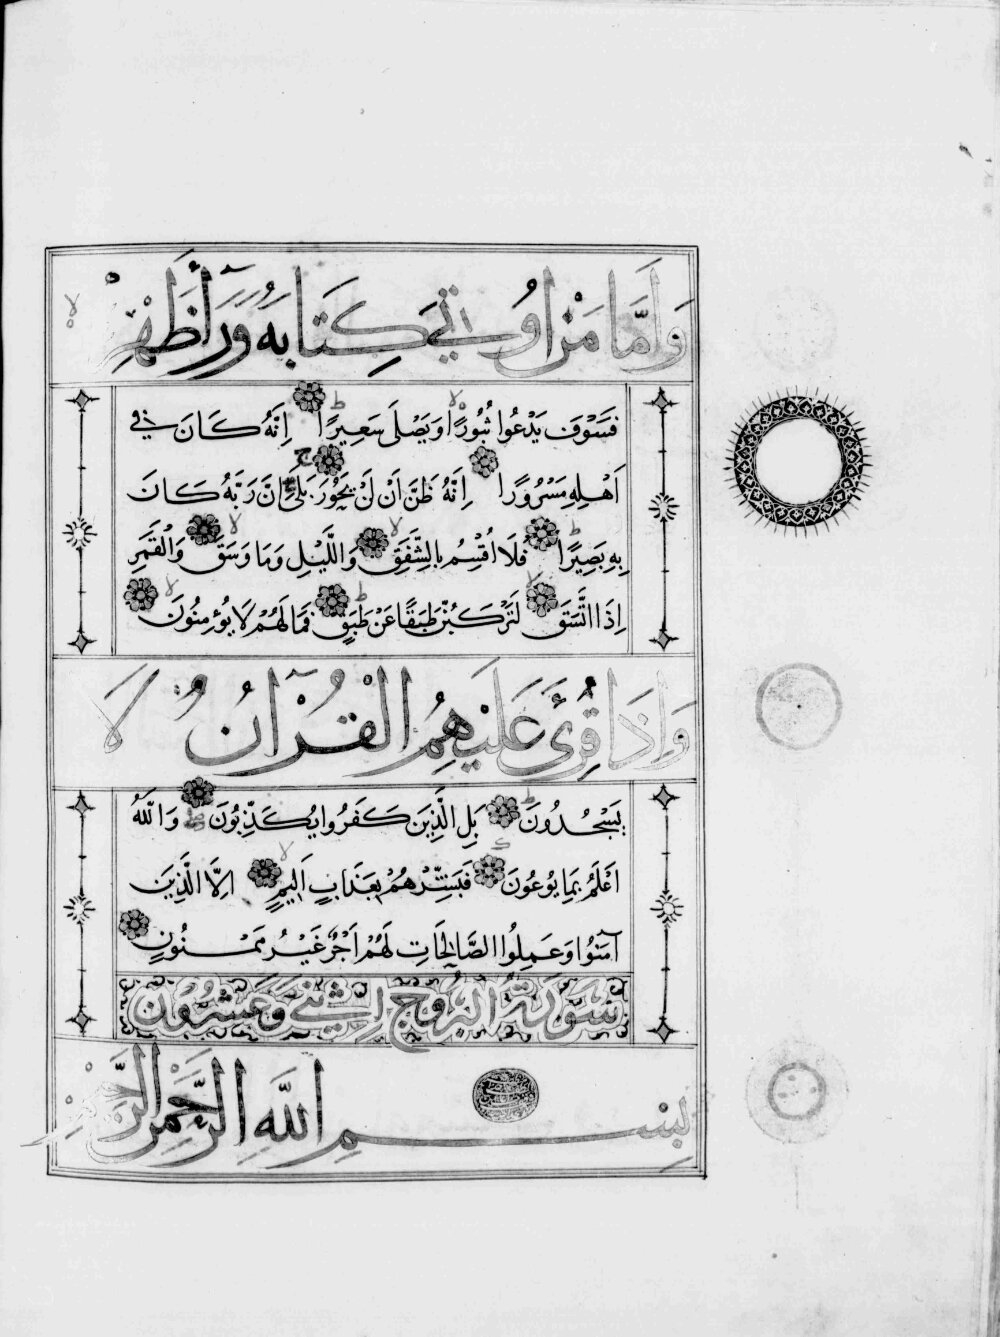 وَاَمَّا مَنْ اُوتِيَ كِتَابَهُ وَرَآءَ ظَهْرِهِ لا
فَسَوْفَ يَدْعُوا ثُبُورًا لا وَيَصْلَى سَعِيرًا ط اِنَّهُ كَانَ فِي
اَهْلِهِ مَسْرُورًا اِنَّهُ ظَنَّ اَنْ لَنْ يَحُورَ ج بَلَى اِنَّ رَبَّهُ كَانَ
بِهِ بَصِيرًا ط فَلَا اُقْسِمُ بِالشَّفَقِ لا وَاللَّيْلِ وَمَا وَسَقَ لا وَالْقَمَرِ
اِذَا اتَّسَقَ لا لَتَرْكَبُنَّ طَبَقًا عَنْ طَبَقٍ ط فَمَا لَهُمْ لَا يُؤْمِنُونَ لا
وَاِذَا قُرِئَ عَلَيْهِمُ الْقُرْآنُ لا
يَسْجُدُونَ ط بَلِ الَّذِينَ كَفَرُوا يُكَذِّبُونَ وَاللَّهُ
اَعْلَمُ بِمَا يُوعُونَ فَبَشِّرْهُمْ بِعَذَابٍ اَلِيمٍ لا اِلَّا الَّذِينَ
آمَنُوا وَعَمِلُوا الصَّالِحَاتِ لَهُمْ اَجْرٌ غَيْرُ مَمْنُونٍ
سورة البروج اثنى وعشرون
بِسْمِ اللَّهِ الرَّحْمَنِ الرَّحِيمِ